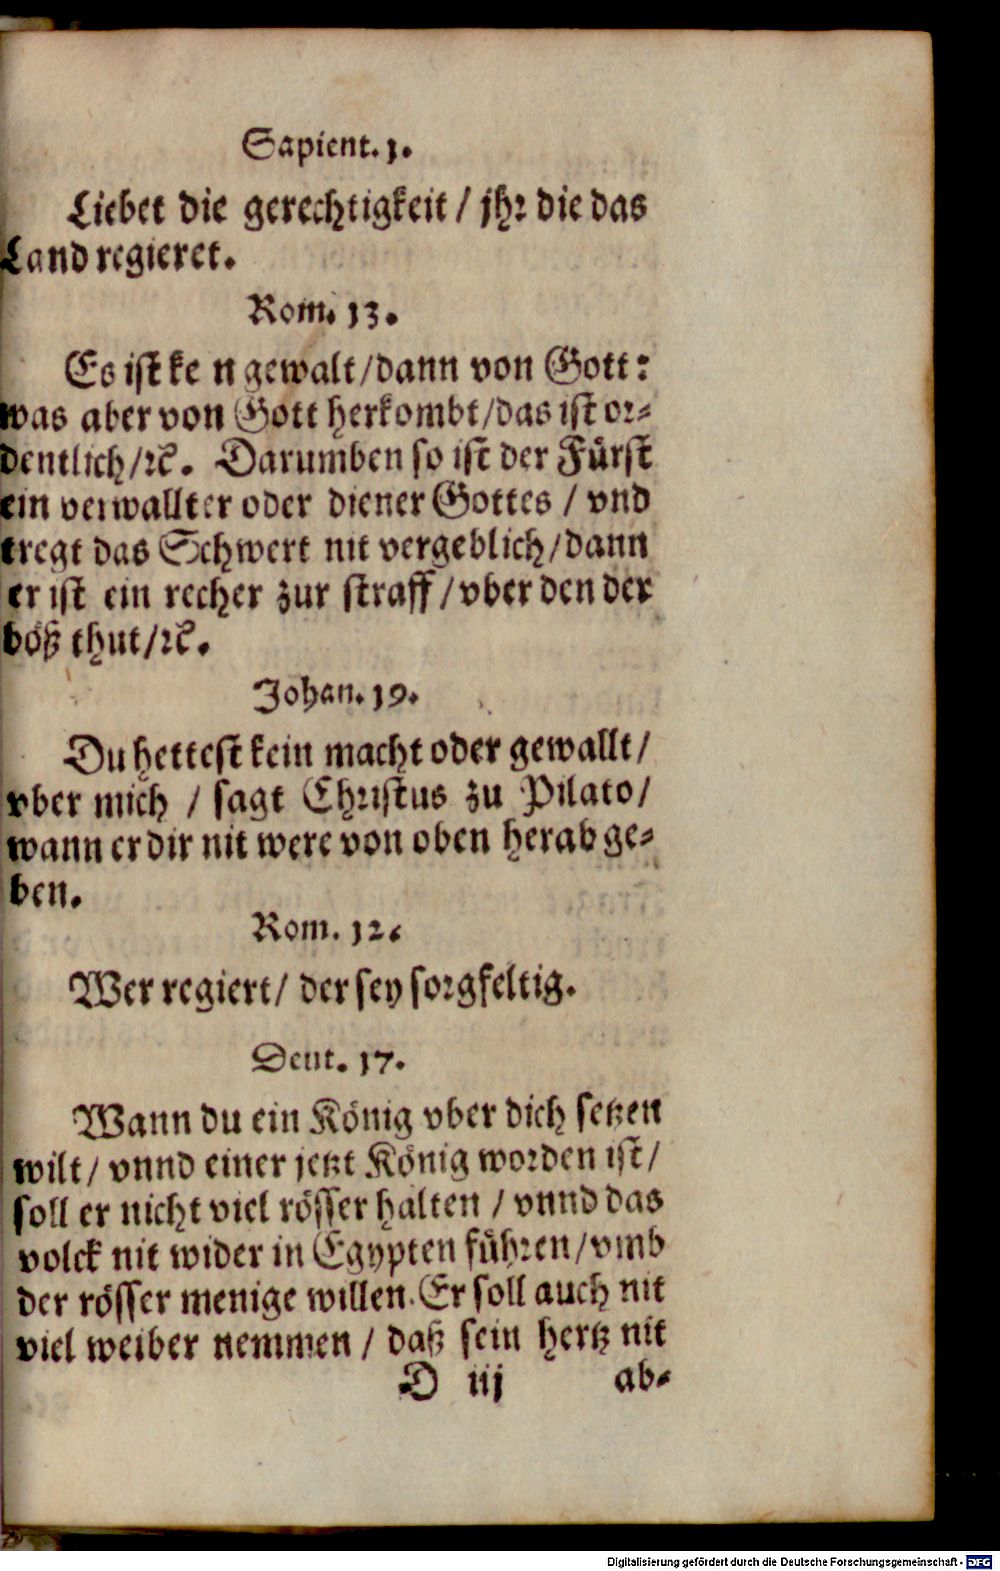 Sapient. 1.
Liebet die gerechtigkeit / jhr die das
Land regieret.
Rom. 13.
Es ist ke n gewalt / dann von Gott:
was aber von Gott herkombt / das ist or⸗
dentlich / ꝛc. Darumben so ist der Fürst
ein verwallter oder diener Gottes / vnd
tregt das Schwert nit vergeblich / dann
er ist ein recher zur straff / vber den der
böß thut / ꝛc.
Johan. 19.
Du hettest kein macht oder gewallt /
vber mich / sagt Christus zu Pilato /
wann er dir nit were von oben herab ge⸗
ben.
Rom. 12.
Wer regiert / der sey sorgfeltig.
Deut. 17.
Wann du ein König vber dich setzen
wilt / vnnd einer jetzt König worden ist /
soll er nicht viel rösser halten / vnnd das
volck nit wider in Egypten führen / vmb
der rösser menige willen. Er soll auch nit
viel weiber nemmen / daß sein hertz nit
D iij ab⸗
Digitalisierung gefördert durch die Deutsche Forschungsgemeinschaft - DFG